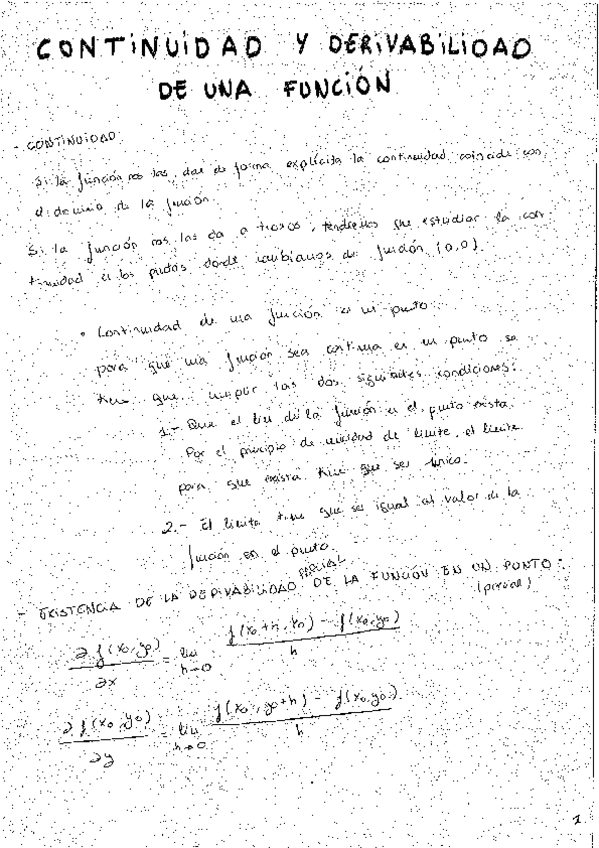 CONTINUIDAD Y DERIVABILIDAD
DE UNA FUNCIÓN
- CONTINUIDAD
Si la función nos las dan de forma explícita la continuidad coincide con
el dominio de la función.
Si la función nos las da a trozos, tendremos que estudiar la con
tinuidad en los puntos donde cambiamos de función (0,0)
• Continuidad de una función en un punto:
para que una función sea continua en un punto se
tiene que cumplir las dos siguientes condiciones:
1.- Que el lim de la función en el punto exista.
Por el principio de unicidad de límite, el límite
para que exista tiene que ser único.
2.- El límite tiene que ser igual al valor de la
función en el punto.
- EXISTENCIA DE LA DERIVABILIDAD PARCIAL DE LA FUNCIÓN EN UN PUNTO:
(parcial)
∂f(x₀,y₀)/∂x = lim h→0 f(x₀+h, y₀) - f(x₀,y₀)/h
∂f(x₀,y₀)/∂y = lim h→0 f(x₀, y₀+h) - f(x₀,y₀)/h
1